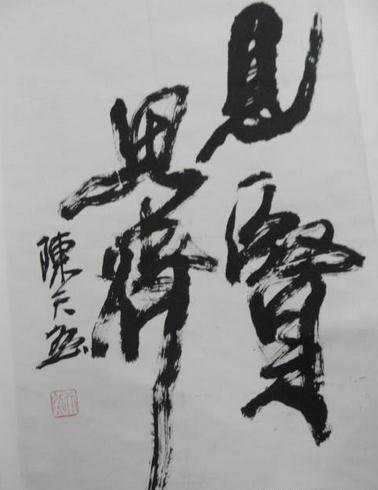 見賢
思齊
陳天